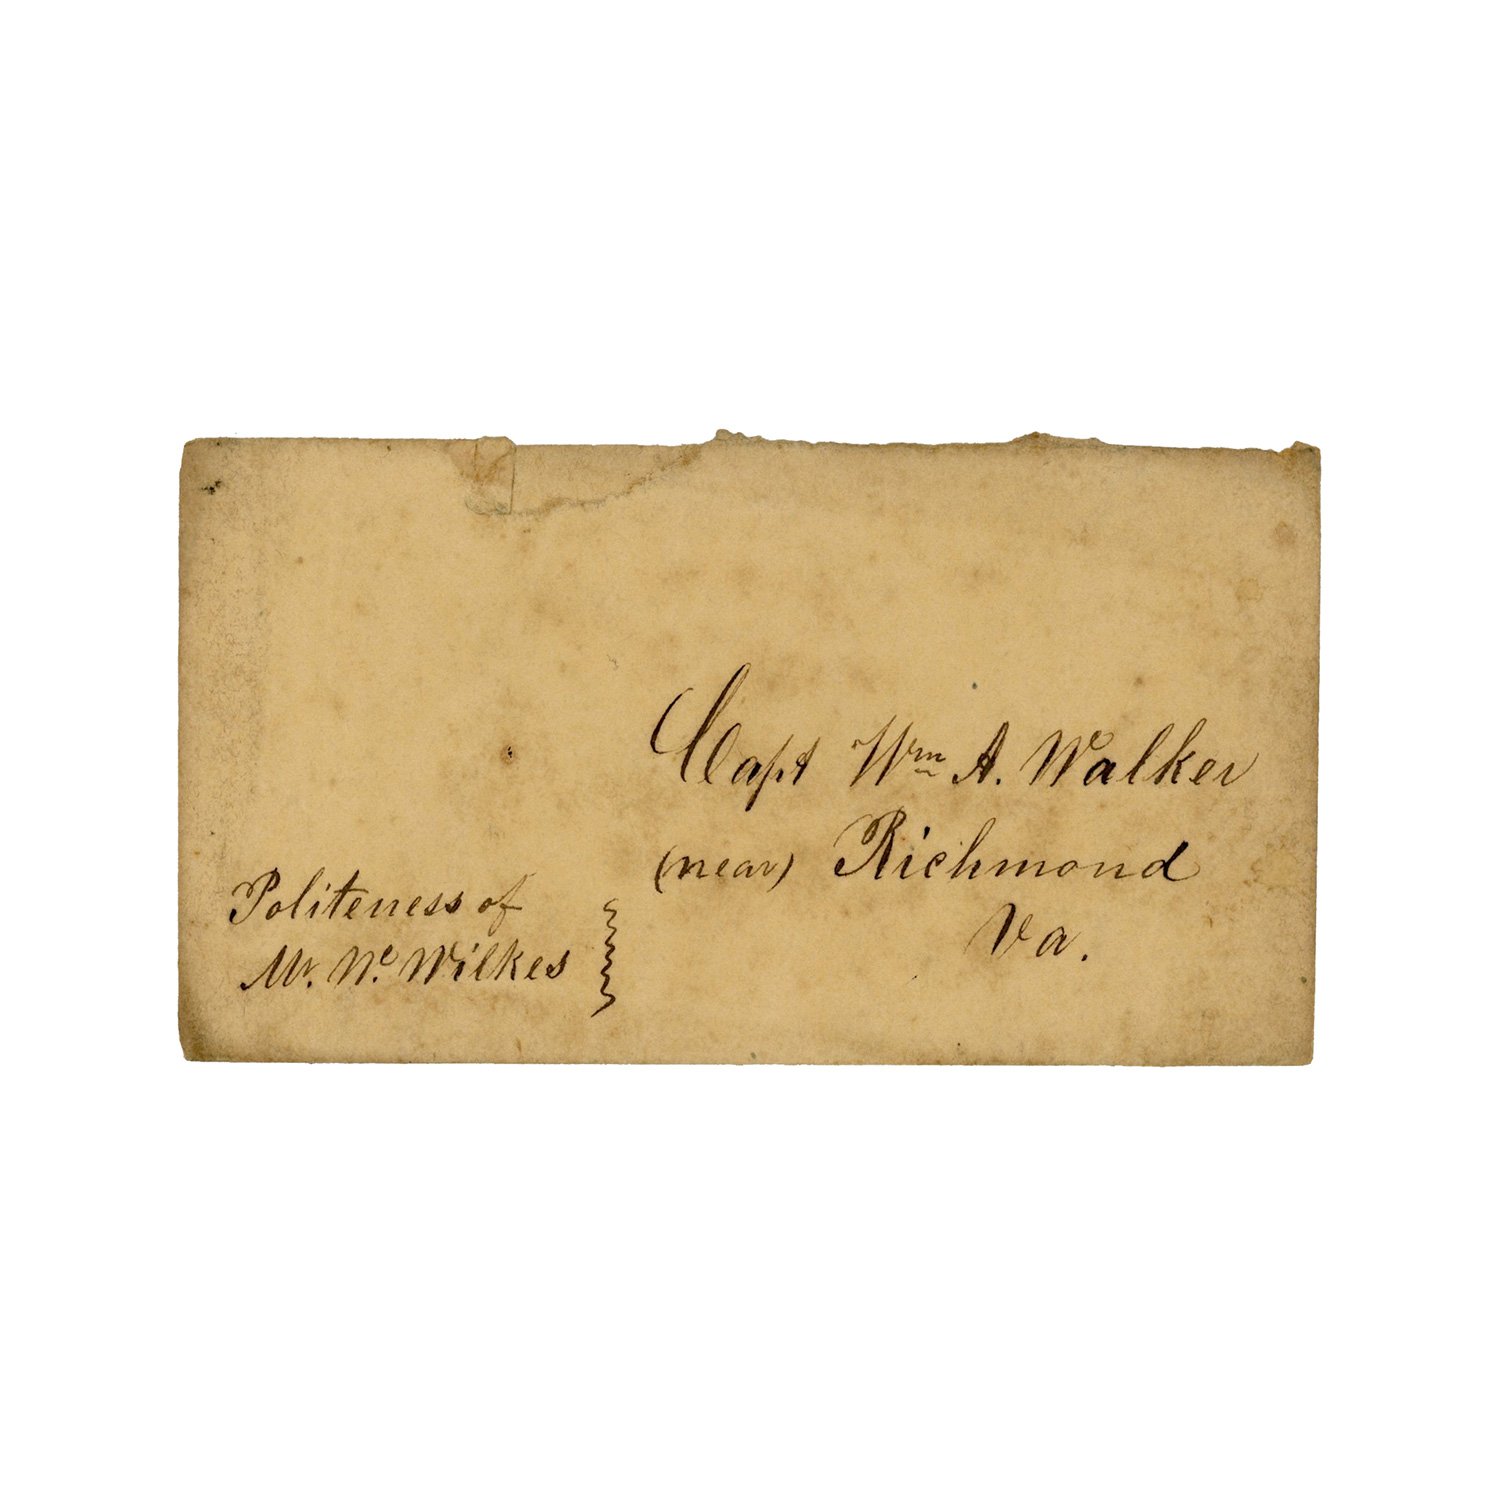 Capt Wm A. Walker
(near) Richmond
Va.
Politeness of
Mr. W. Wilkes